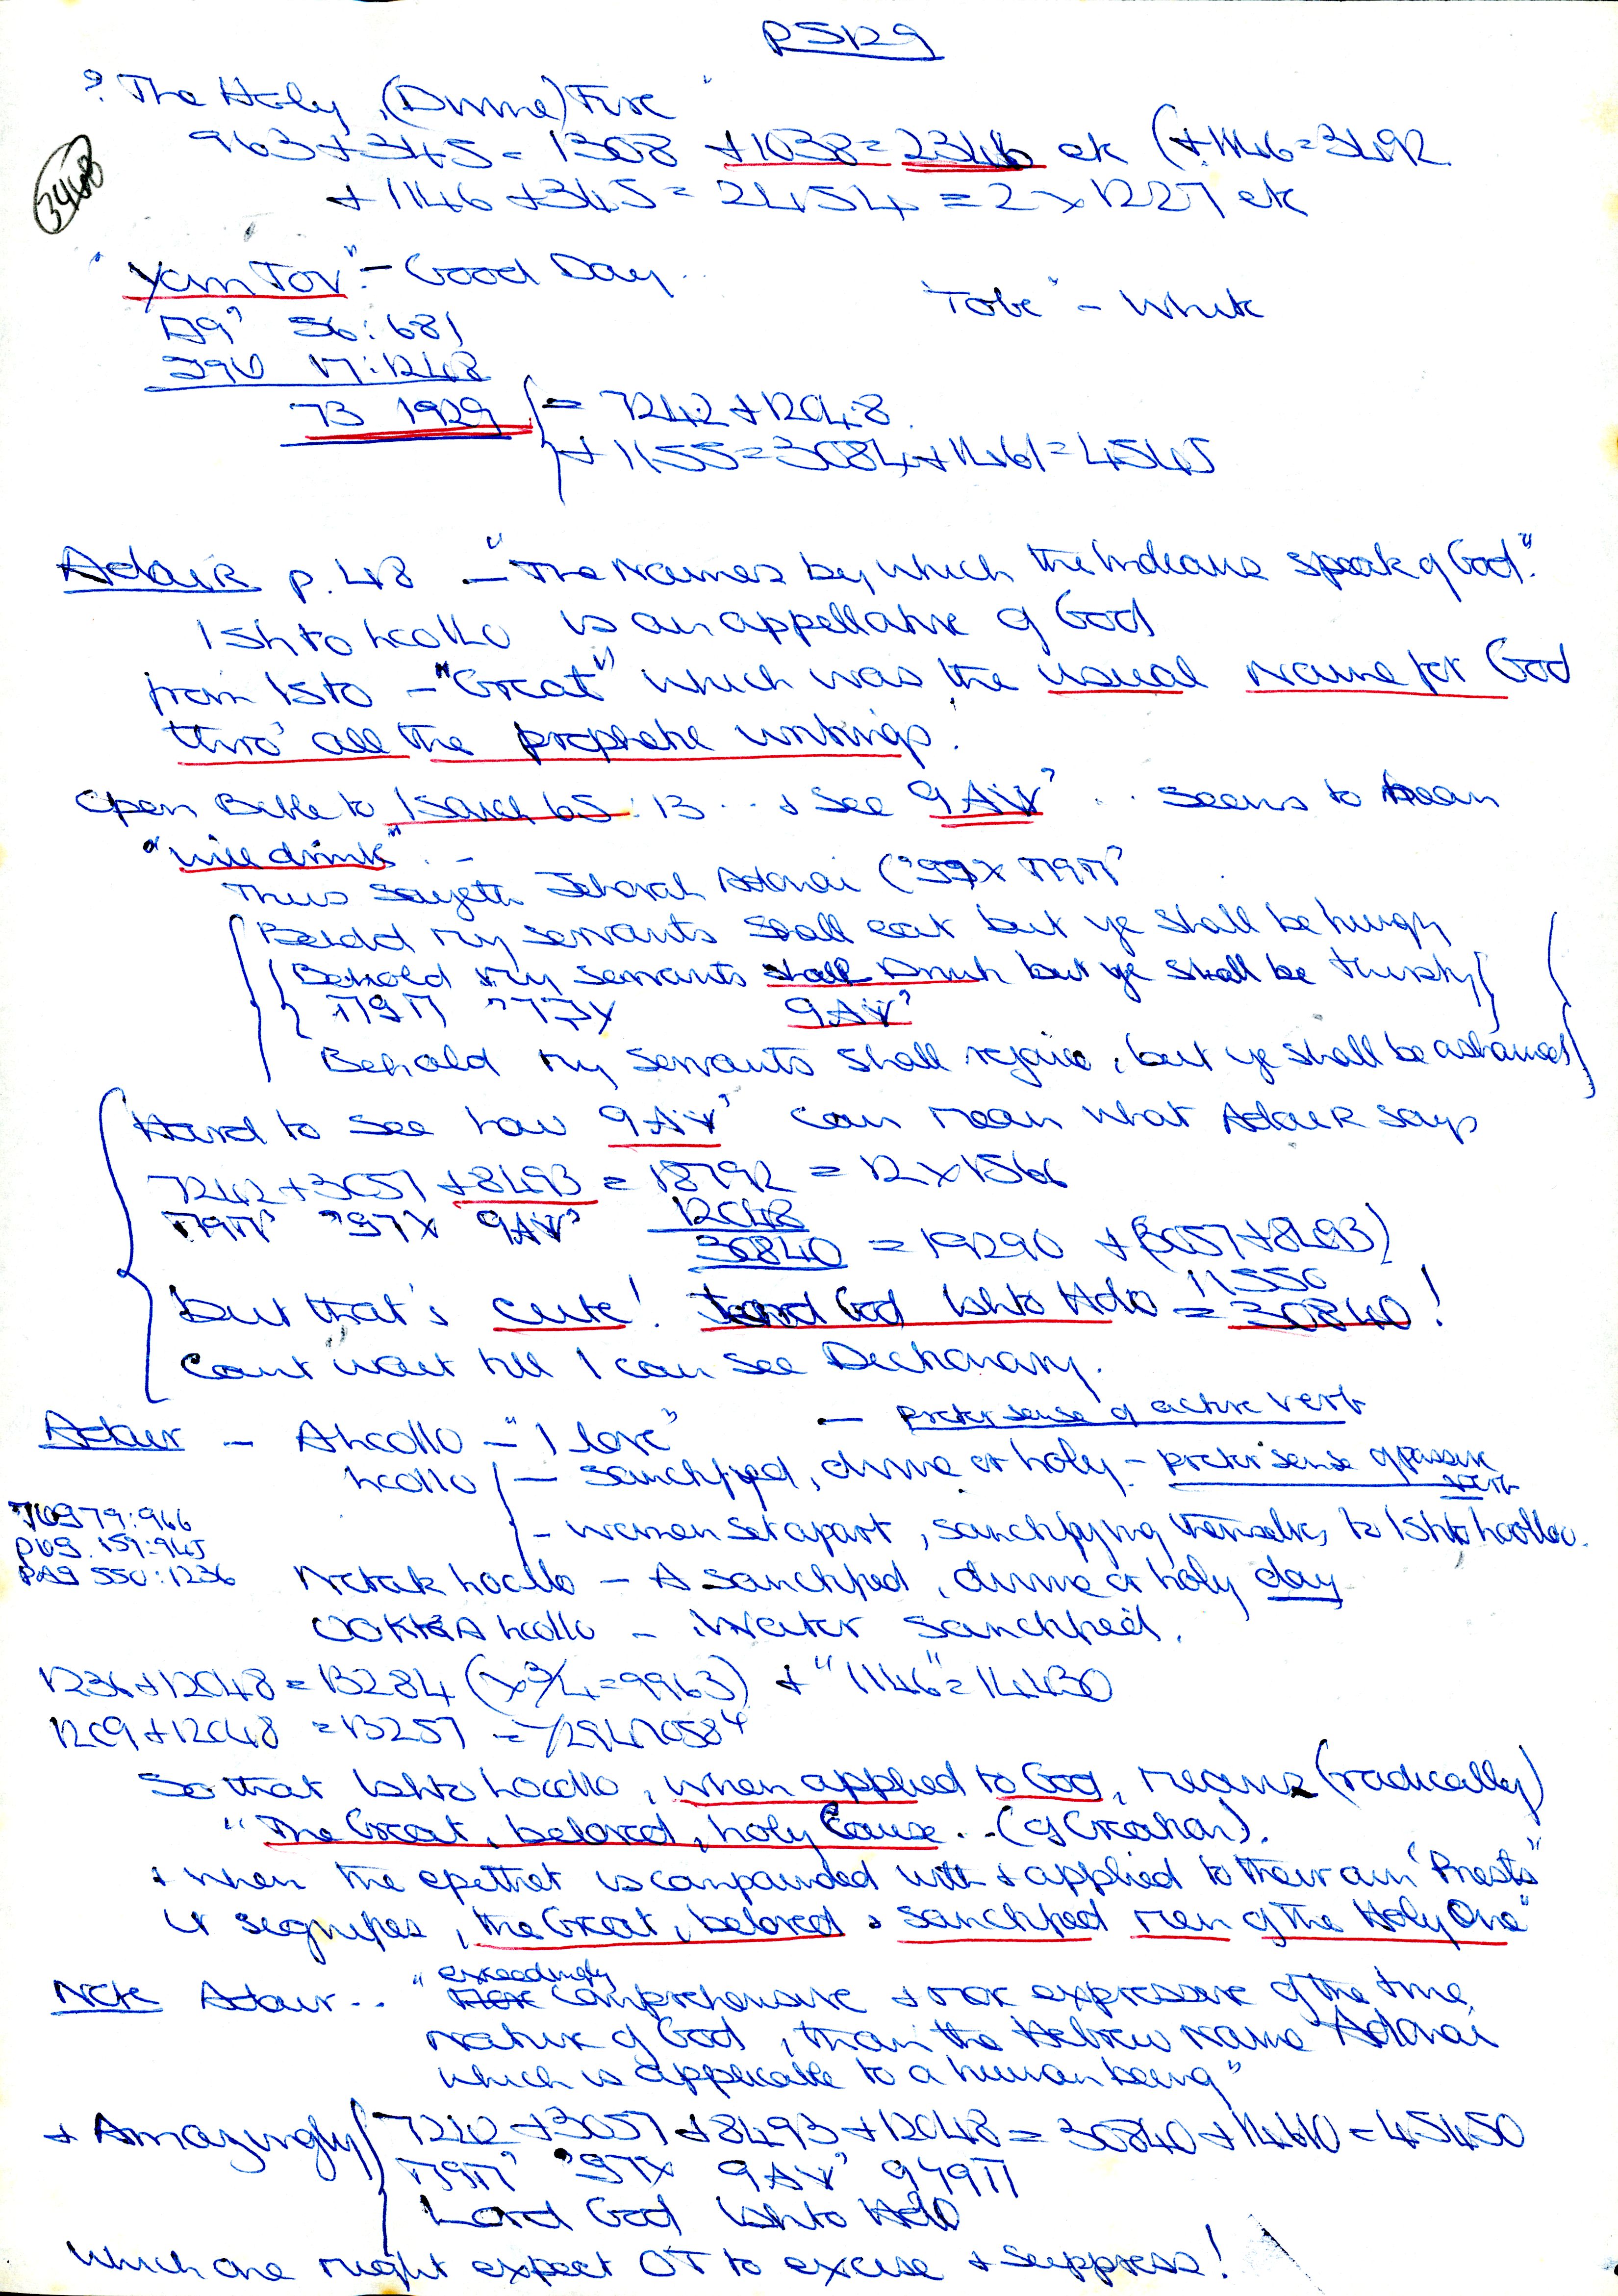 PS129
? "The Holy, (Divine) Fire"
963 + 345 = 1308 + 1038 = 2346 etc (+ 1146 = 3492
3468
+ 1146 + 345 = 2454 = 2 x 1227 etc
"Yom Tov" - Good Day.
"Tobe" - White
56 : 681
17 : 1248
73 1929 = 7242 + 12048
+ 1155 = 3084 + 1461 = 4545
Adair p. 48 - "The Names by which the Indians speak of God."
Ishto hoollo is an appellative of God
from Ishto - "Great" which was the usual name for God
thro' all the prophetic writings.
Open Bible to Isaiah 65:13 .. & see .. seems to mean
"will drink" . -
Thus sayeth Jehovah Adonai
Behold my servants shall eat but ye shall be hungry
Behold my servants shall Drink but ye shall be thirsty
Behold my servants shall rejoice, but ye shall be ashamed
Hard to see how can mean what Adair says
7242 + 3057 + 8493 = 18792 = 12 x 1566
12048
30840 = 19290 + (3057 + 8493)
11550
but that's cute! Lord God Ishto Holo = 30840!
Can't wait till I can see Dictionary.
Adair - Ahoollo - "I love" - preter sense of active verb
hoollo - sanctified, divine or holy - preter sense of passive verb
79 : 966
- women set apart, sanctifying themselves, to Ishto hoollo.
159 : 945
550 : 1236
Netak hoollo - A sanctified, divine or holy day
OOKKA hoollo - Water sanctified.
1236 + 12048 = 13284 (x 3/4 = 9963) + "1146" = 14430
1209 + 12048 = 13257
So that Ishto hoollo, when applied to God, means (radically)
"The Great, beloved, holy Cause .. (of Creation).
& when the epithet is compounded with & applied to their own "Priests"
it signifies, the Great, beloved & sanctified men of the Holy One"
Note Adair .. "exceedingly comprehensive & more expressive of the true,
nature of God, than the Hebrew name Adonai
which is applicable to a human being"
& Amazingly 7242 + 3057 + 8493 + 12048 = 30840 + 14610 = 45450
Lord God Ishto Holo
Which one might expect OT to excise & suppress!